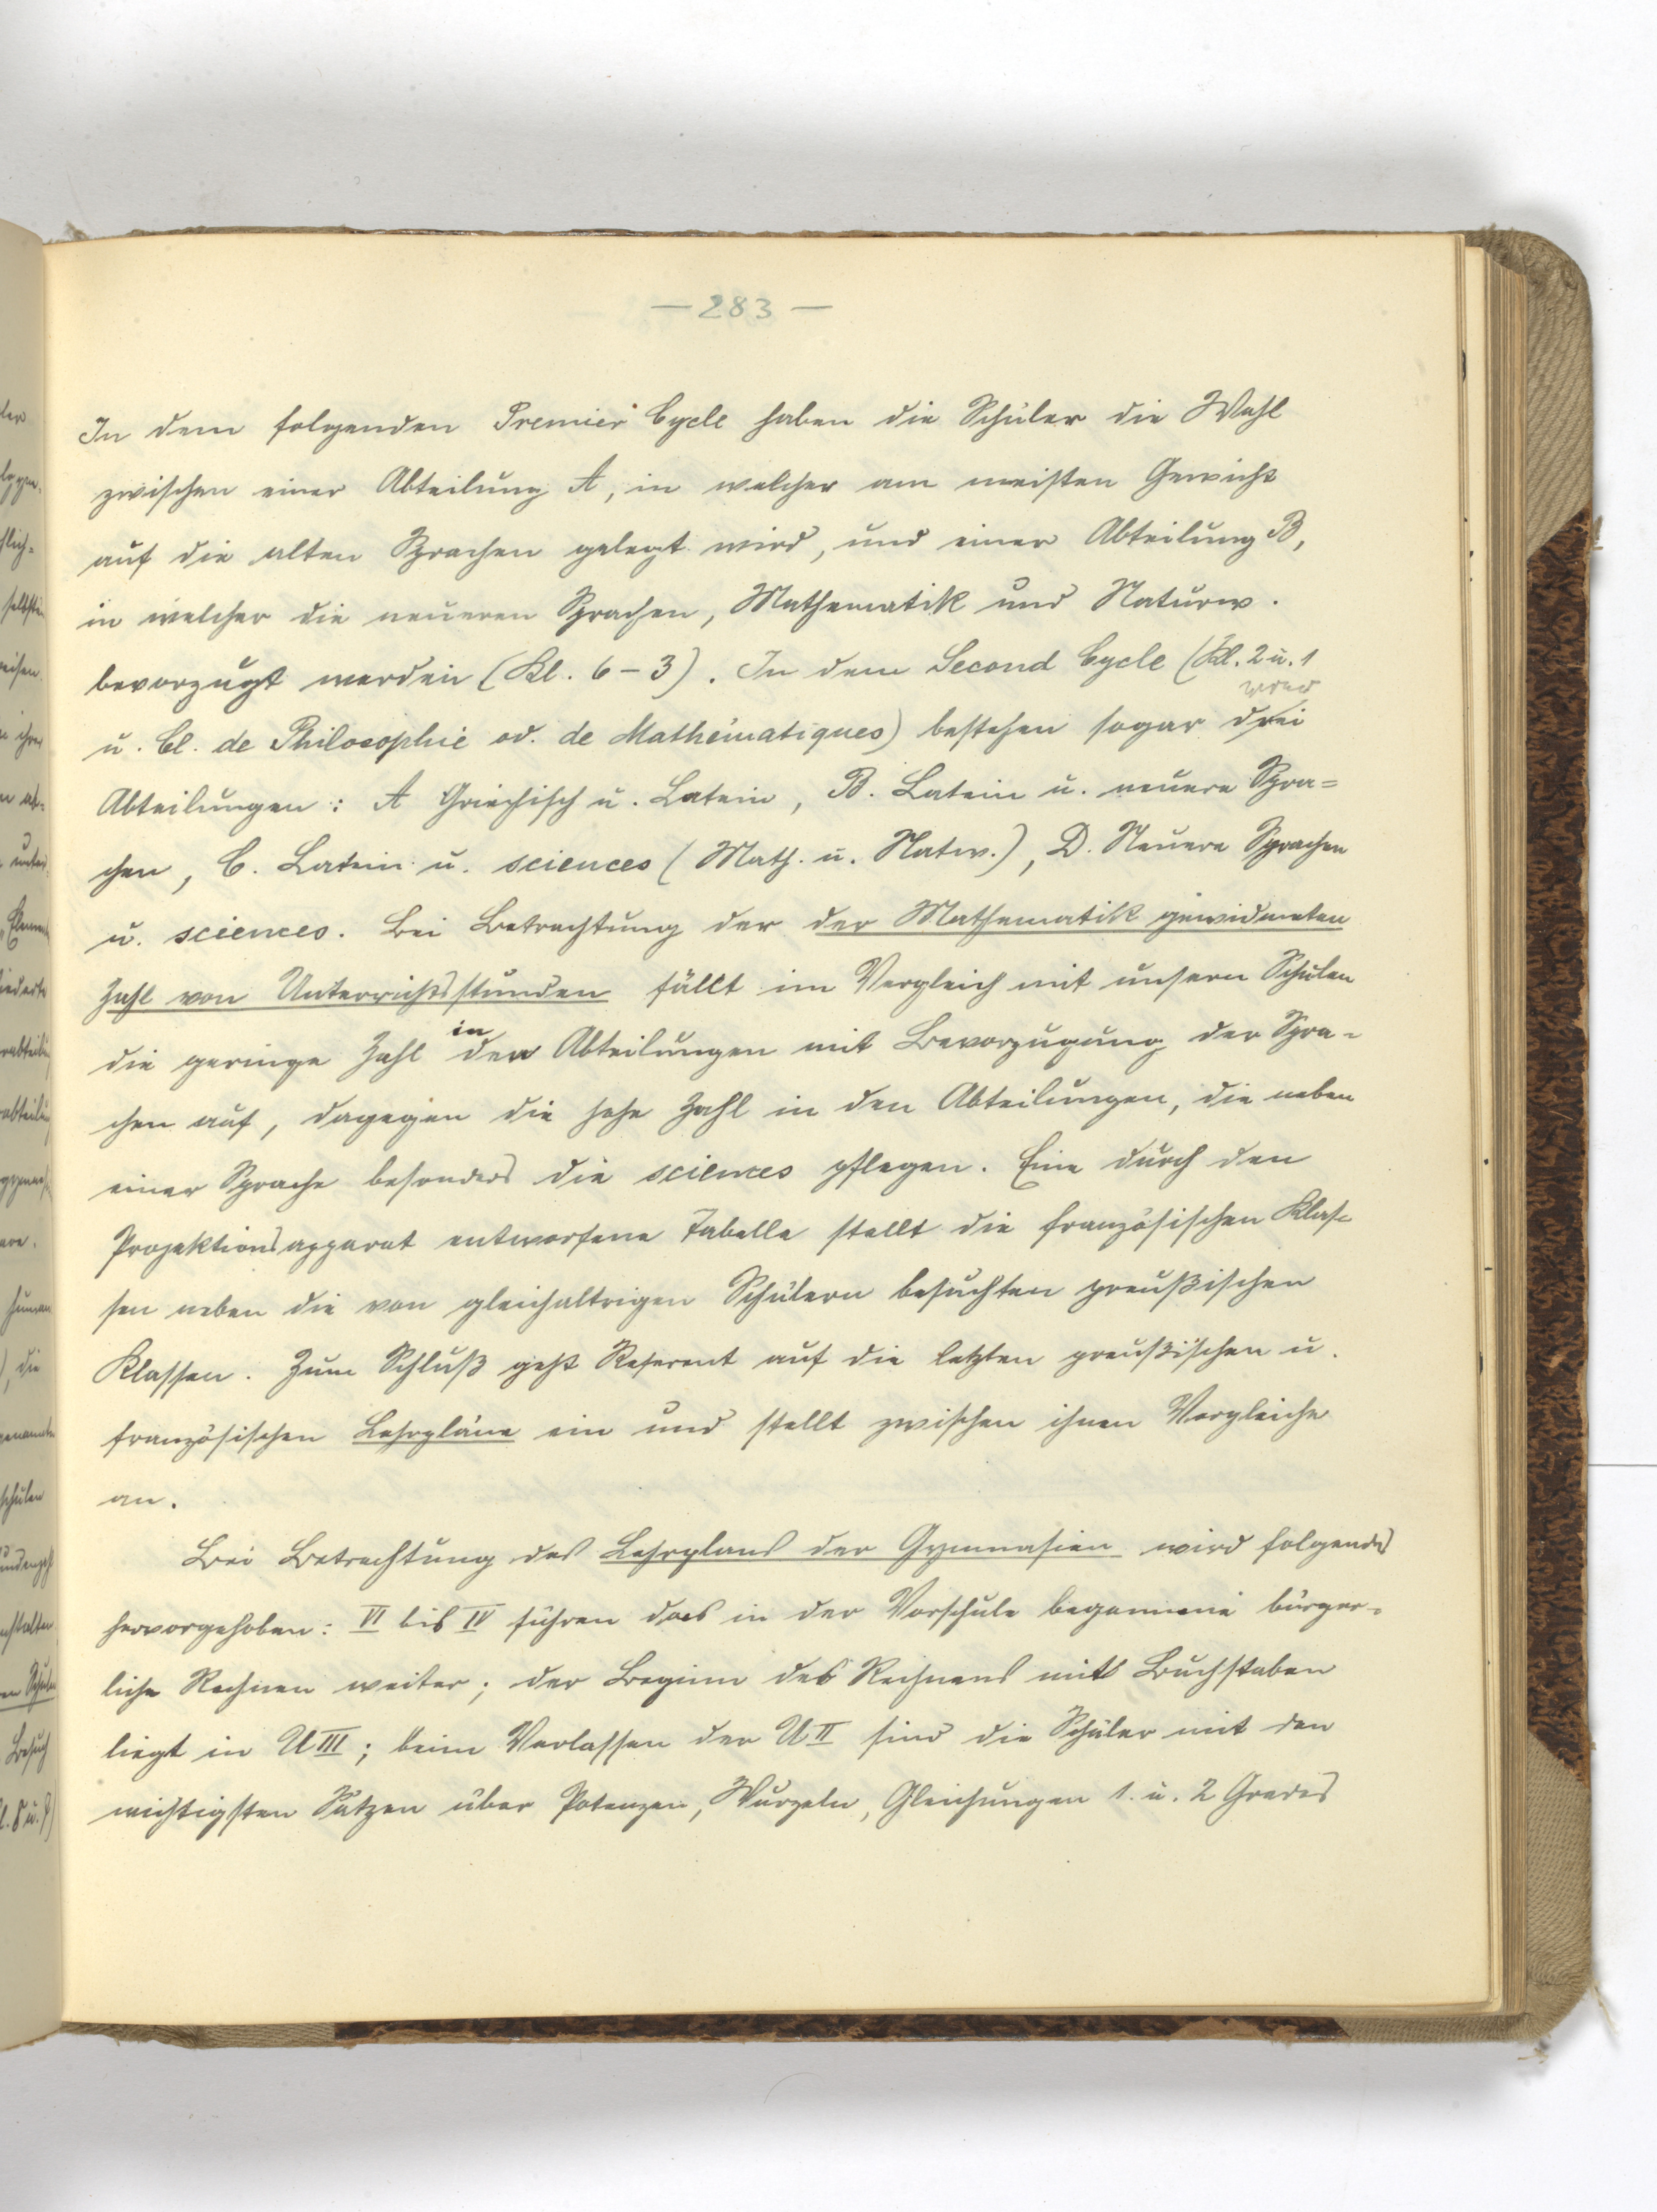 — 283 —
In dem folgenden Premier Cycle haben die Schüler die Wahl
zwischen einer Abteilung A, in welcher am meisten Gewicht
auf die alten Sprachen gelegt wird, und einer Abteilung B,
in welcher die neueren Sprachen, Mathematik und Naturw.
bevorzugt werden (Kl. 6–3). In dem Second Cycle (Kl. 2 u. 1
u. Cl. de Philosophie od. de Mathématiques) bestehen sogar drei
Abteilungen: A Griechisch u. Latein, B. Latein u. neuere Spra=
chen, C. Latein u. sciences (Math. u. Natw.), D. Neuere Sprachen
u. sciences. Bei Betrachtung der der Mathematik gewidmeten
Zahl von Unterrichtsstunden fällt im Vergleich mit unsern Schulen
die geringe Zahl in den Abteilungen mit Bevorzugung der Spra-
chen auf, dagegen die hohe Zahl in den Abteilungen, die neben
einer Sprache besonders die sciences pflegen. Eine durch den
Projektionsapparat entworfene Tabelle stellt die französischen Klas=
sen neben die von gleichaltrigen Schülern besuchten preußischen
Klassen. Zum Schluß geht Referent auf die letzten preußischen u.
französischen Lehrpläne ein und stellt zwischen ihnen Vergleiche
an.
Bei Betrachtung des Lehrplans der Gymnasien wird folgendes
hervorgehoben: VI bis IV führen das in der Vorschule begonnene bürger=
liche Rechnen weiter; der Beginn des Rechnens mit Buchstaben
liegt in U III; beim Verlassen der U II sind die Schüler mit den
wichtigsten Sätzen über Potenzen, Wurzeln, Gleichungen 1. u. 2 Grades